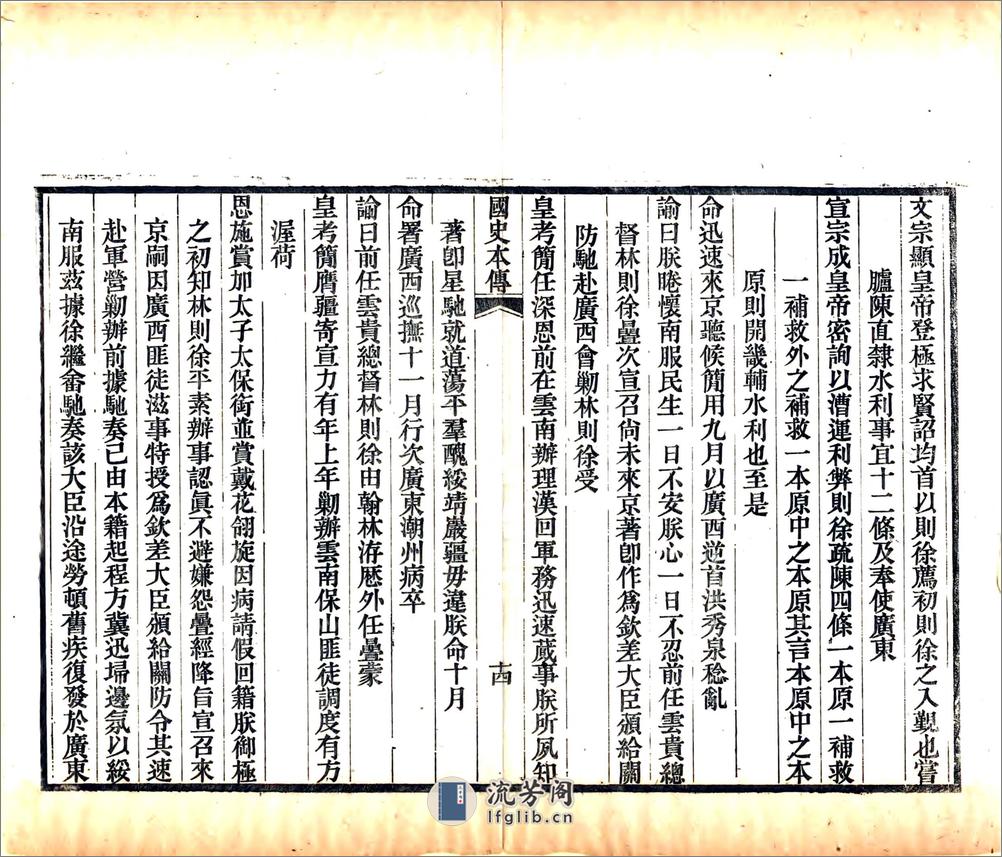 文宗顯皇帝登極求賢詔均首以則徐薦初則徐之入覲也嘗
臚陳直隸水利事宜十二條及奉使廣東
宣宗成皇帝密詢以漕運利弊則徐疏陳四條一本原一補救
一補救外之補救一本原中之本原其言本原中之本
原則開畿輔水利也至是
命迅速來京聽候簡用九月以廣西逆首洪秀泉稔亂
諭曰朕睠懷南服民生一日不安朕心一日不忍前任雲貴總
督林則徐疊次宣召尙未來京著卽作爲欽差大臣頒給關
防馳赴廣西會勦林則徐受
皇考簡任深恩前在雲南辦理漢回軍務迅速蕆事朕所夙知
國史本傳
十四
著卽星馳就道蕩平羣醜綏靖嚴疆毋違朕命十月
命署廣西巡撫十一月行次廣東潮州病卒
諭曰前任雲貴總督林則徐由翰林洊歷外任疊蒙
皇考簡膺疆寄宣力有年上年勦辦雲南保山匪徒調度有方
渥荷
恩施賞加太子太保銜並賞戴花翎旋因病請假回籍朕御極
之初知林則徐平素辦事認眞不避嫌怨疊經降旨宣召來
京嗣因廣西匪徒滋事特授爲欽差大臣頒給關防令其速
赴軍營勦辦前據馳奏已由本籍起程方冀迅埽邊氛以綏
南服茲據徐繼畬馳奏該大臣沿途勞頓舊疾復發於廣東
流芳阁
lfglib.cn